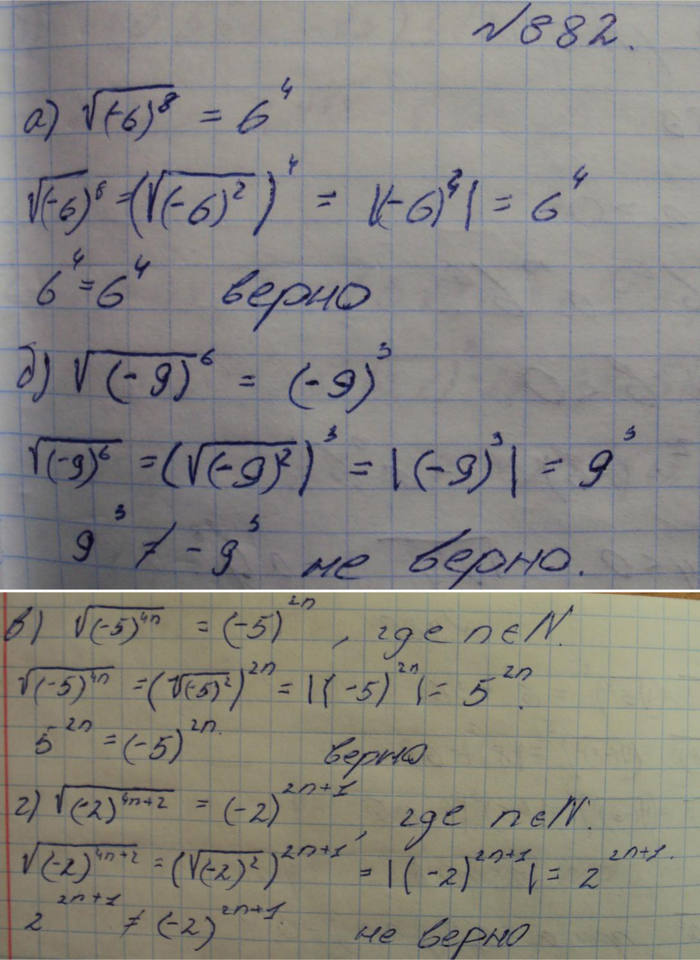 №882.
а) √(-6)⁸ = 6⁴
√(-6)⁸ = (√(-6)²)⁴ = |(-6)⁴| = 6⁴
6⁴ = 6⁴ верно
б) √(-9)⁶ = (-9)³
√(-9)⁶ = (√(-9)²)³ = |(-9)³| = 9³
9³ ≠ -9³ не верно.
в) √(-5)⁴ⁿ = (-5)²ⁿ, где n∈N.
√(-5)⁴ⁿ = (√(-5)²)²ⁿ = |(-5)²ⁿ| = 5²ⁿ.
5²ⁿ = (-5)²ⁿ. верно
г) √(-2)⁴ⁿ⁺² = (-2)²ⁿ⁺¹, где n∈N.
√(-2)⁴ⁿ⁺² = (√(-2)²)²ⁿ⁺¹ = |(-2)²ⁿ⁺¹| = 2²ⁿ⁺¹.
2²ⁿ⁺¹ ≠ (-2)²ⁿ⁺¹. не верно